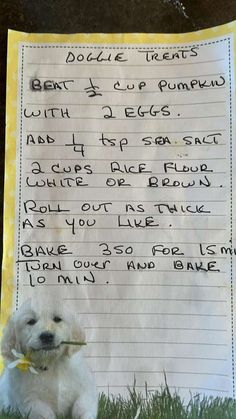 DOGGIE TREATS
BEAT 1/2 CUP PUMPKIN
WITH 2 EGGS.
ADD 1/4 tsp SEA SALT
2 CUPS RICE FLOUR
WHITE OR BROWN.
ROLL OUT AS THICK
AS YOU LIKE.
BAKE 350 FOR 15 MI
TURN OVER AND BAKE
10 MIN.